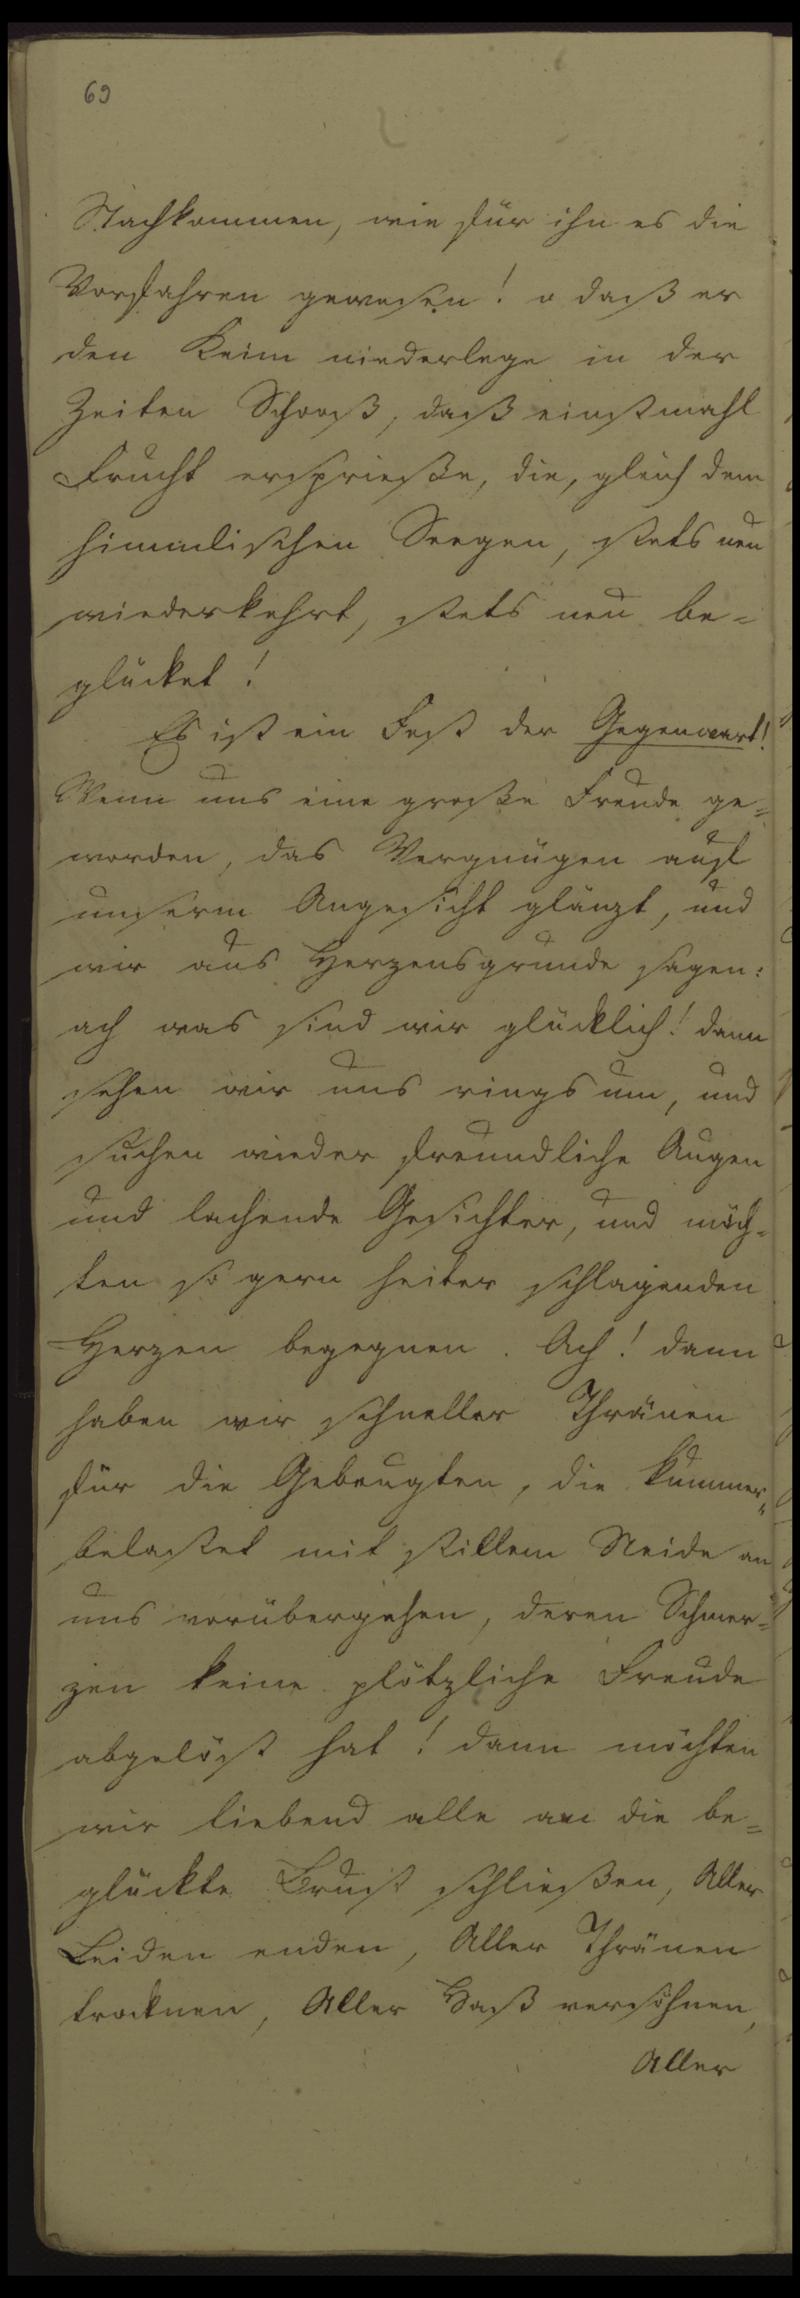 69
Nachkommen, wie für ihn es die
Vorfahren gewesen! o daß er
den Keim niederlege in der
Zeiten Schooß, daß einstmahl
Frucht ersprieße, die, gleich dem
himmlischen Seegen, stets neu
wiederkehrt, stets neu be=
glücket!
Es ist ein Fest der Gegenwart!
Wenn uns eine große Freude ge=
worden, das Vergnügen auf
unserm Angesicht glänzt, und
wir aus Herzensgrunde sagen:
ach was sind wir glücklich! dann
sehen wir uns rings um, und
suchen wieder freundliche Augen
und lachende Gesichter, und möch=
ten so gern heiter schlagenden
Herzen begegnen. Ach! dann
haben wir schneller Thränen
für die Gebeugten, die kummer=
belastet mit stillem Neide an
uns vorübergehen, deren Schmer=
zen keine plötzliche Freude
abgelöst hat! dann möchten
wir liebend alle an die be=
glückte Brust schließen, Aller
Leiden enden, Aller Thränen
trocknen, Aller Haß versöhnen,
Aller